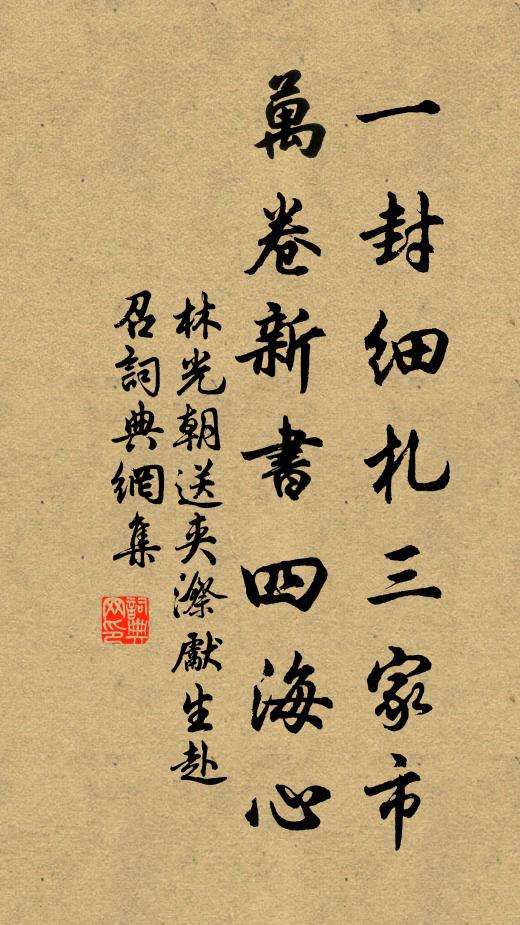 一封細札三家市
萬卷新書四海心
林光朝送夾漈獻生赴
召詞典網集
詞典
网印